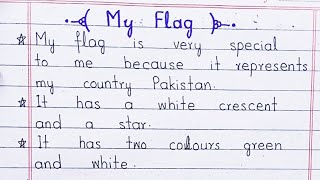 My Flag
☆ My flag is very special
to me because it represents
my country Pakistan.
☆ It has a white crescent
and a star.
☆ It has two colours green
and white.